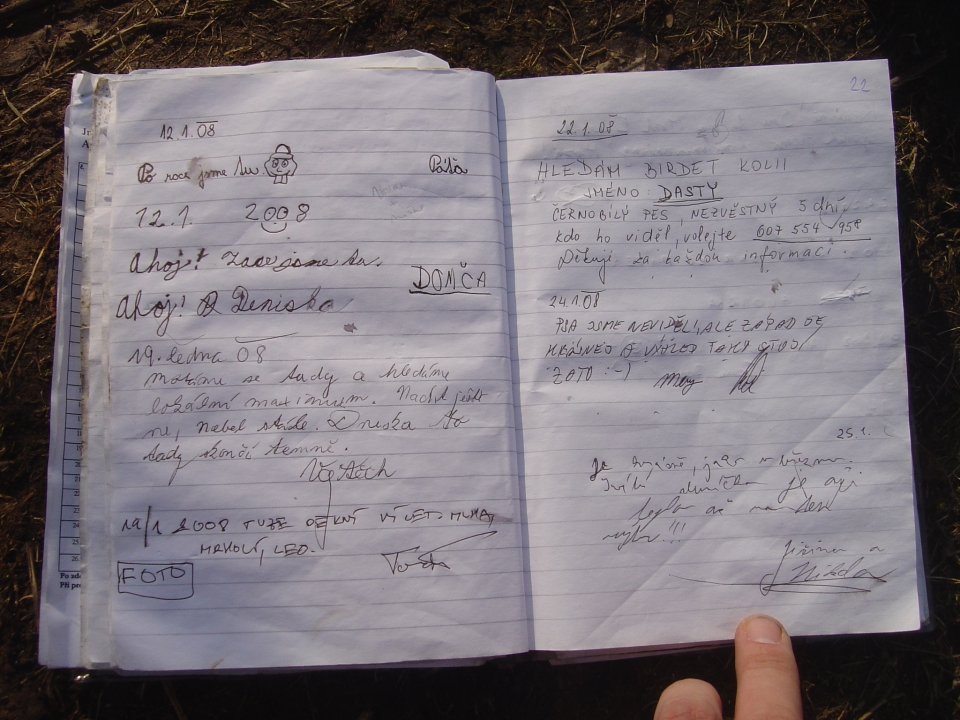 12.1.08
Po roce jsme tu
Páťa
12.1. 2008
Ahoj! Zase jsme tu.
DOMČA
Ahoj! Deniska
19. ledna 08
motáme se tady a hledáme
lokální maximum. Nadil ještě
ne, Nabel stále. Dneska to
tady končí temně.
Vojtěch
19/1 2008 TUZE PĚKNÝ VÝLET - MLHA,
MRHOLÍ, LED.
FOTO
22
22.1.08
HLEDÁM BIRDET KOLII
JMÉNO: DASTY
ČERNOBÍLÝ PES, NEZVĚSTNÝ 5 dní,
kdo ho viděl, volejte 607 554 958
Děkuji za každou informaci.
24.1.08
PSA JSME NEVIDĚLI, ALE ZÁPAD JE
KRÁSNEJ A VÝHLED TAKY STOJÍ
ZATO :-)
25.1.
Je, jako v březnu.
Svítí sluníčko je
teplo až na ten
Jiřina a